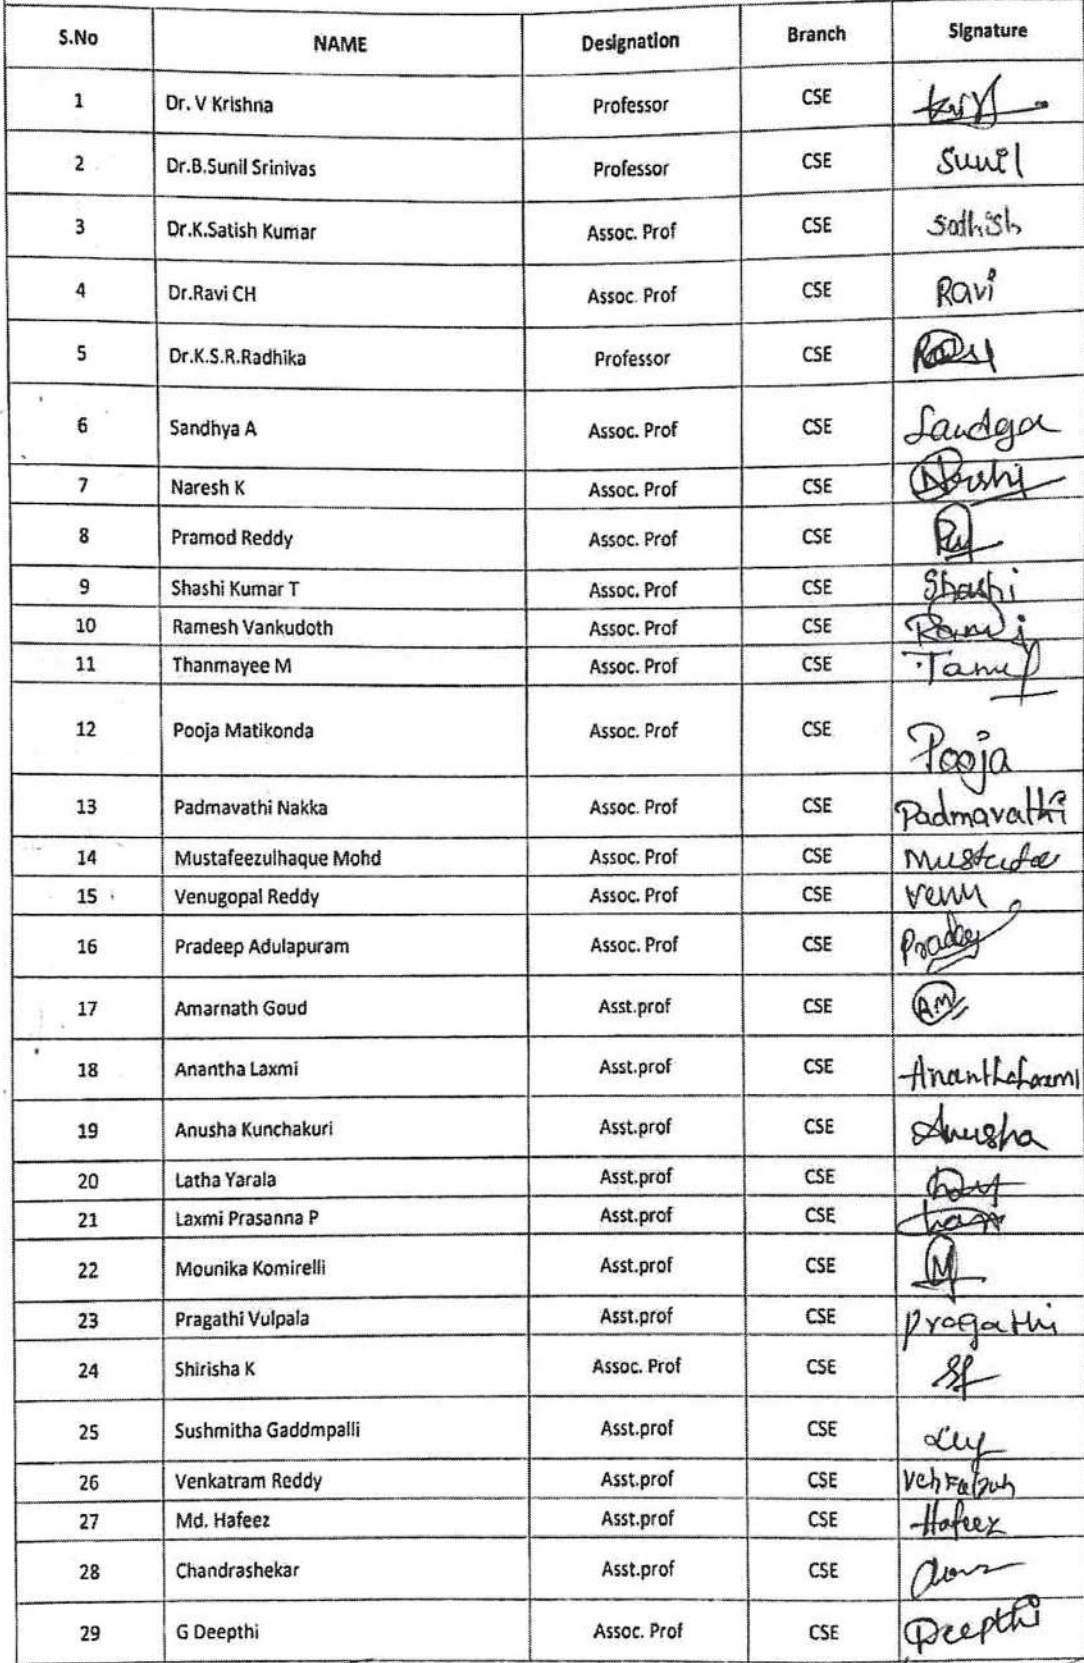 S.No NAME Designation Branch Signature
1 Dr. V Krishna Professor CSE
2 Dr.B.Sunil Srinivas Professor CSE Sunil
3 Dr.K.Satish Kumar Assoc. Prof CSE Sathish
4 Dr.Ravi CH Assoc. Prof CSE Ravi
5 Dr.K.S.R.Radhika Professor CSE
6 Sandhya A Assoc. Prof CSE
7 Naresh K Assoc. Prof CSE
8 Pramod Reddy Assoc. Prof CSE
9 Shashi Kumar T Assoc. Prof CSE Shashi
10 Ramesh Vankudoth Assoc. Prof CSE
11 Thanmayee M Assoc. Prof CSE
12 Pooja Matikonda Assoc. Prof CSE Pooja
13 Padmavathi Nakka Assoc. Prof CSE Padmavathi
14 Mustafeezulhaque Mohd Assoc. Prof CSE Mustafa
15 Venugopal Reddy Assoc. Prof CSE Venu
16 Pradeep Adulapuram Assoc. Prof CSE Pradeep
17 Amarnath Goud Asst.prof CSE AM
18 Anantha Laxmi Asst.prof CSE AnanthaLaxmi
19 Anusha Kunchakuri Asst.prof CSE Anusha
20 Latha Yarala Asst.prof CSE
21 Laxmi Prasanna P Asst.prof CSE
22 Mounika Komirelli Asst.prof CSE M
23 Pragathi Vulpala Asst.prof CSE Pragathi
24 Shirisha K Assoc. Prof CSE
25 Sushmitha Gaddmpalli Asst.prof CSE
26 Venkatram Reddy Asst.prof CSE
27 Md. Hafeez Asst.prof CSE Hafeez
28 Chandrashekar Asst.prof CSE
29 G Deepthi Assoc. Prof CSE Deepthi